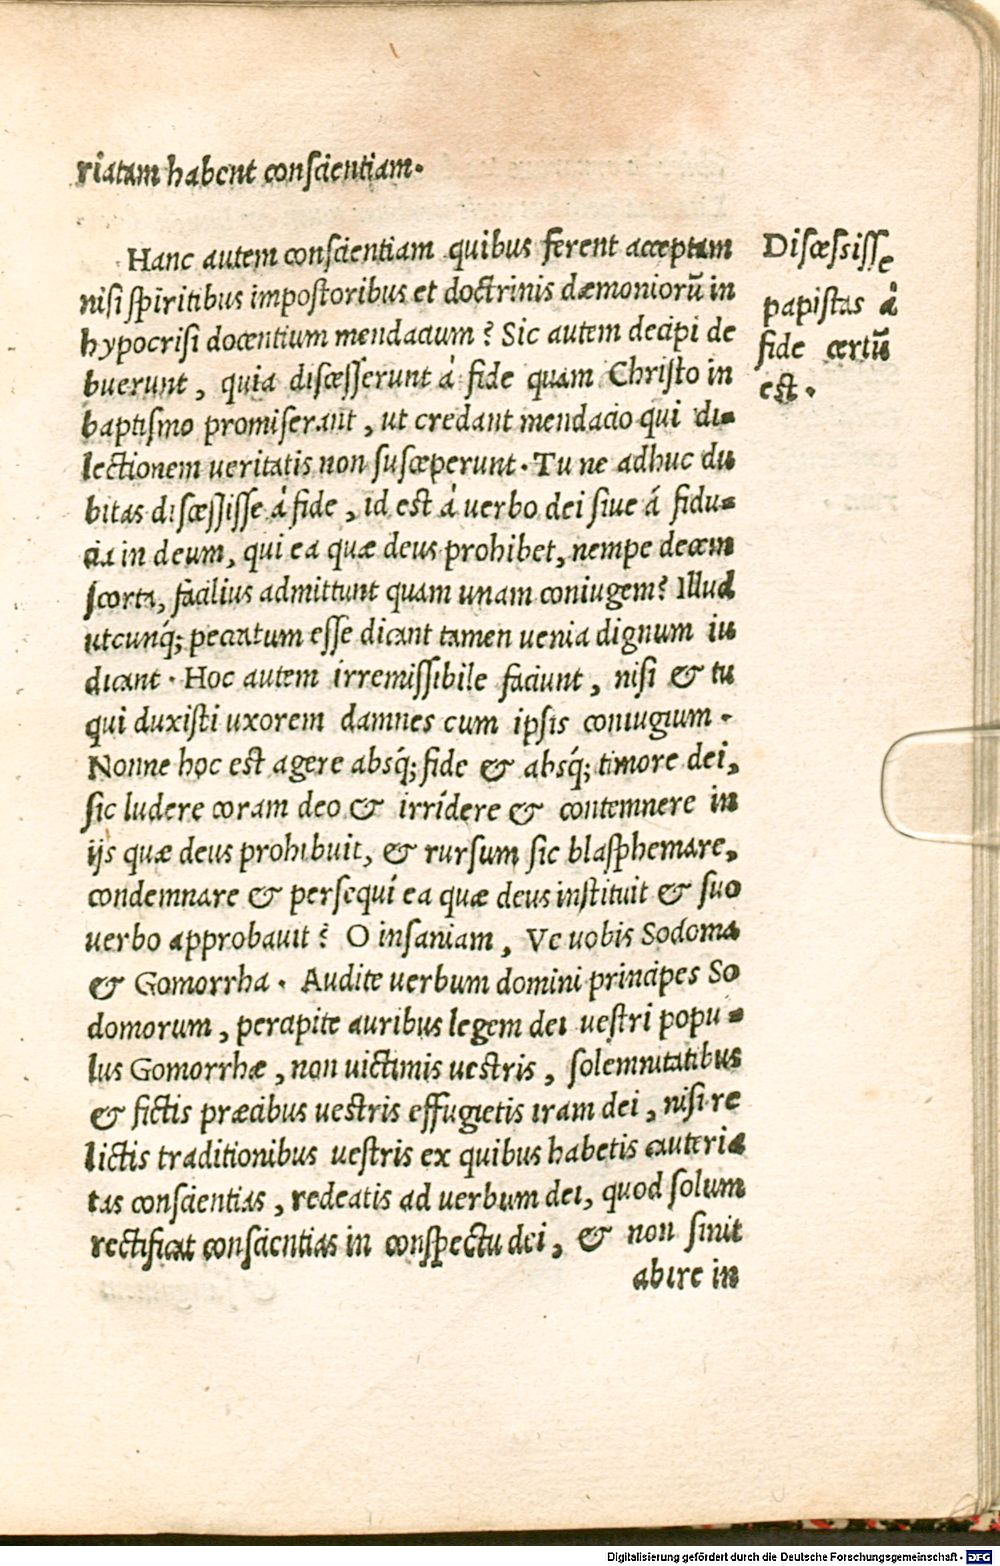 riatam habent conscientiam.
Hanc autem conscientiam quibus ferent acceptam
nisi spiritibus impostoribus et doctrinis dæmoniorũ in
hypocrisi docentium mendacium? Sic autem decipi de
buerunt, quia discesserunt à fide quam Christo in
baptismo promiserant, ut credant mendacio qui di-
lectionem ueritatis non susceperunt. Tu ne adhuc du
bitas discessisse à fide, id est à uerbo dei siue á fidu-
cia in deum, qui ea quæ deus prohibet, nempe decem
scorta, facilius admittunt quam unam coniugem? Illud
utcunq́; peccatum esse dicant tamen uenia dignum iu
dicant. Hoc autem irremissibile faciunt, nisi & tu
qui duxisti uxorem damnes cum ipsis coniugium.
Nonne hoc est agere absq́; fide & absq́; timore dei,
sic ludere coram deo & irrídere & contemnere in
ijs quæ deus prohibuit, & rursum sic blasphemare,
condemnare & persequí ea quæ deus instituit & suo
uerbo approbauit? O insaniam, Ve uobis Sodoma
& Gomorrha. Audite uerbum domini principes So
domorum, percipite auribus legem dei uestri popu-
lus Gomorrhæ, non uictimis uestris, solemnitatibus
& fictis præcibus uestris effugietis iram dei, nisi re
lictis traditionibus uestris ex quibus habetis cauteria
tas conscientias, redeatis ad uerbum dei, quod solum
rectificat conscientias in conspectu dei, & non sinit
abire in
Discessisse
papistas à
fide certũ
est.
Digitalisierung gefördert durch die Deutsche Forschungsgemeinschaft - DFG